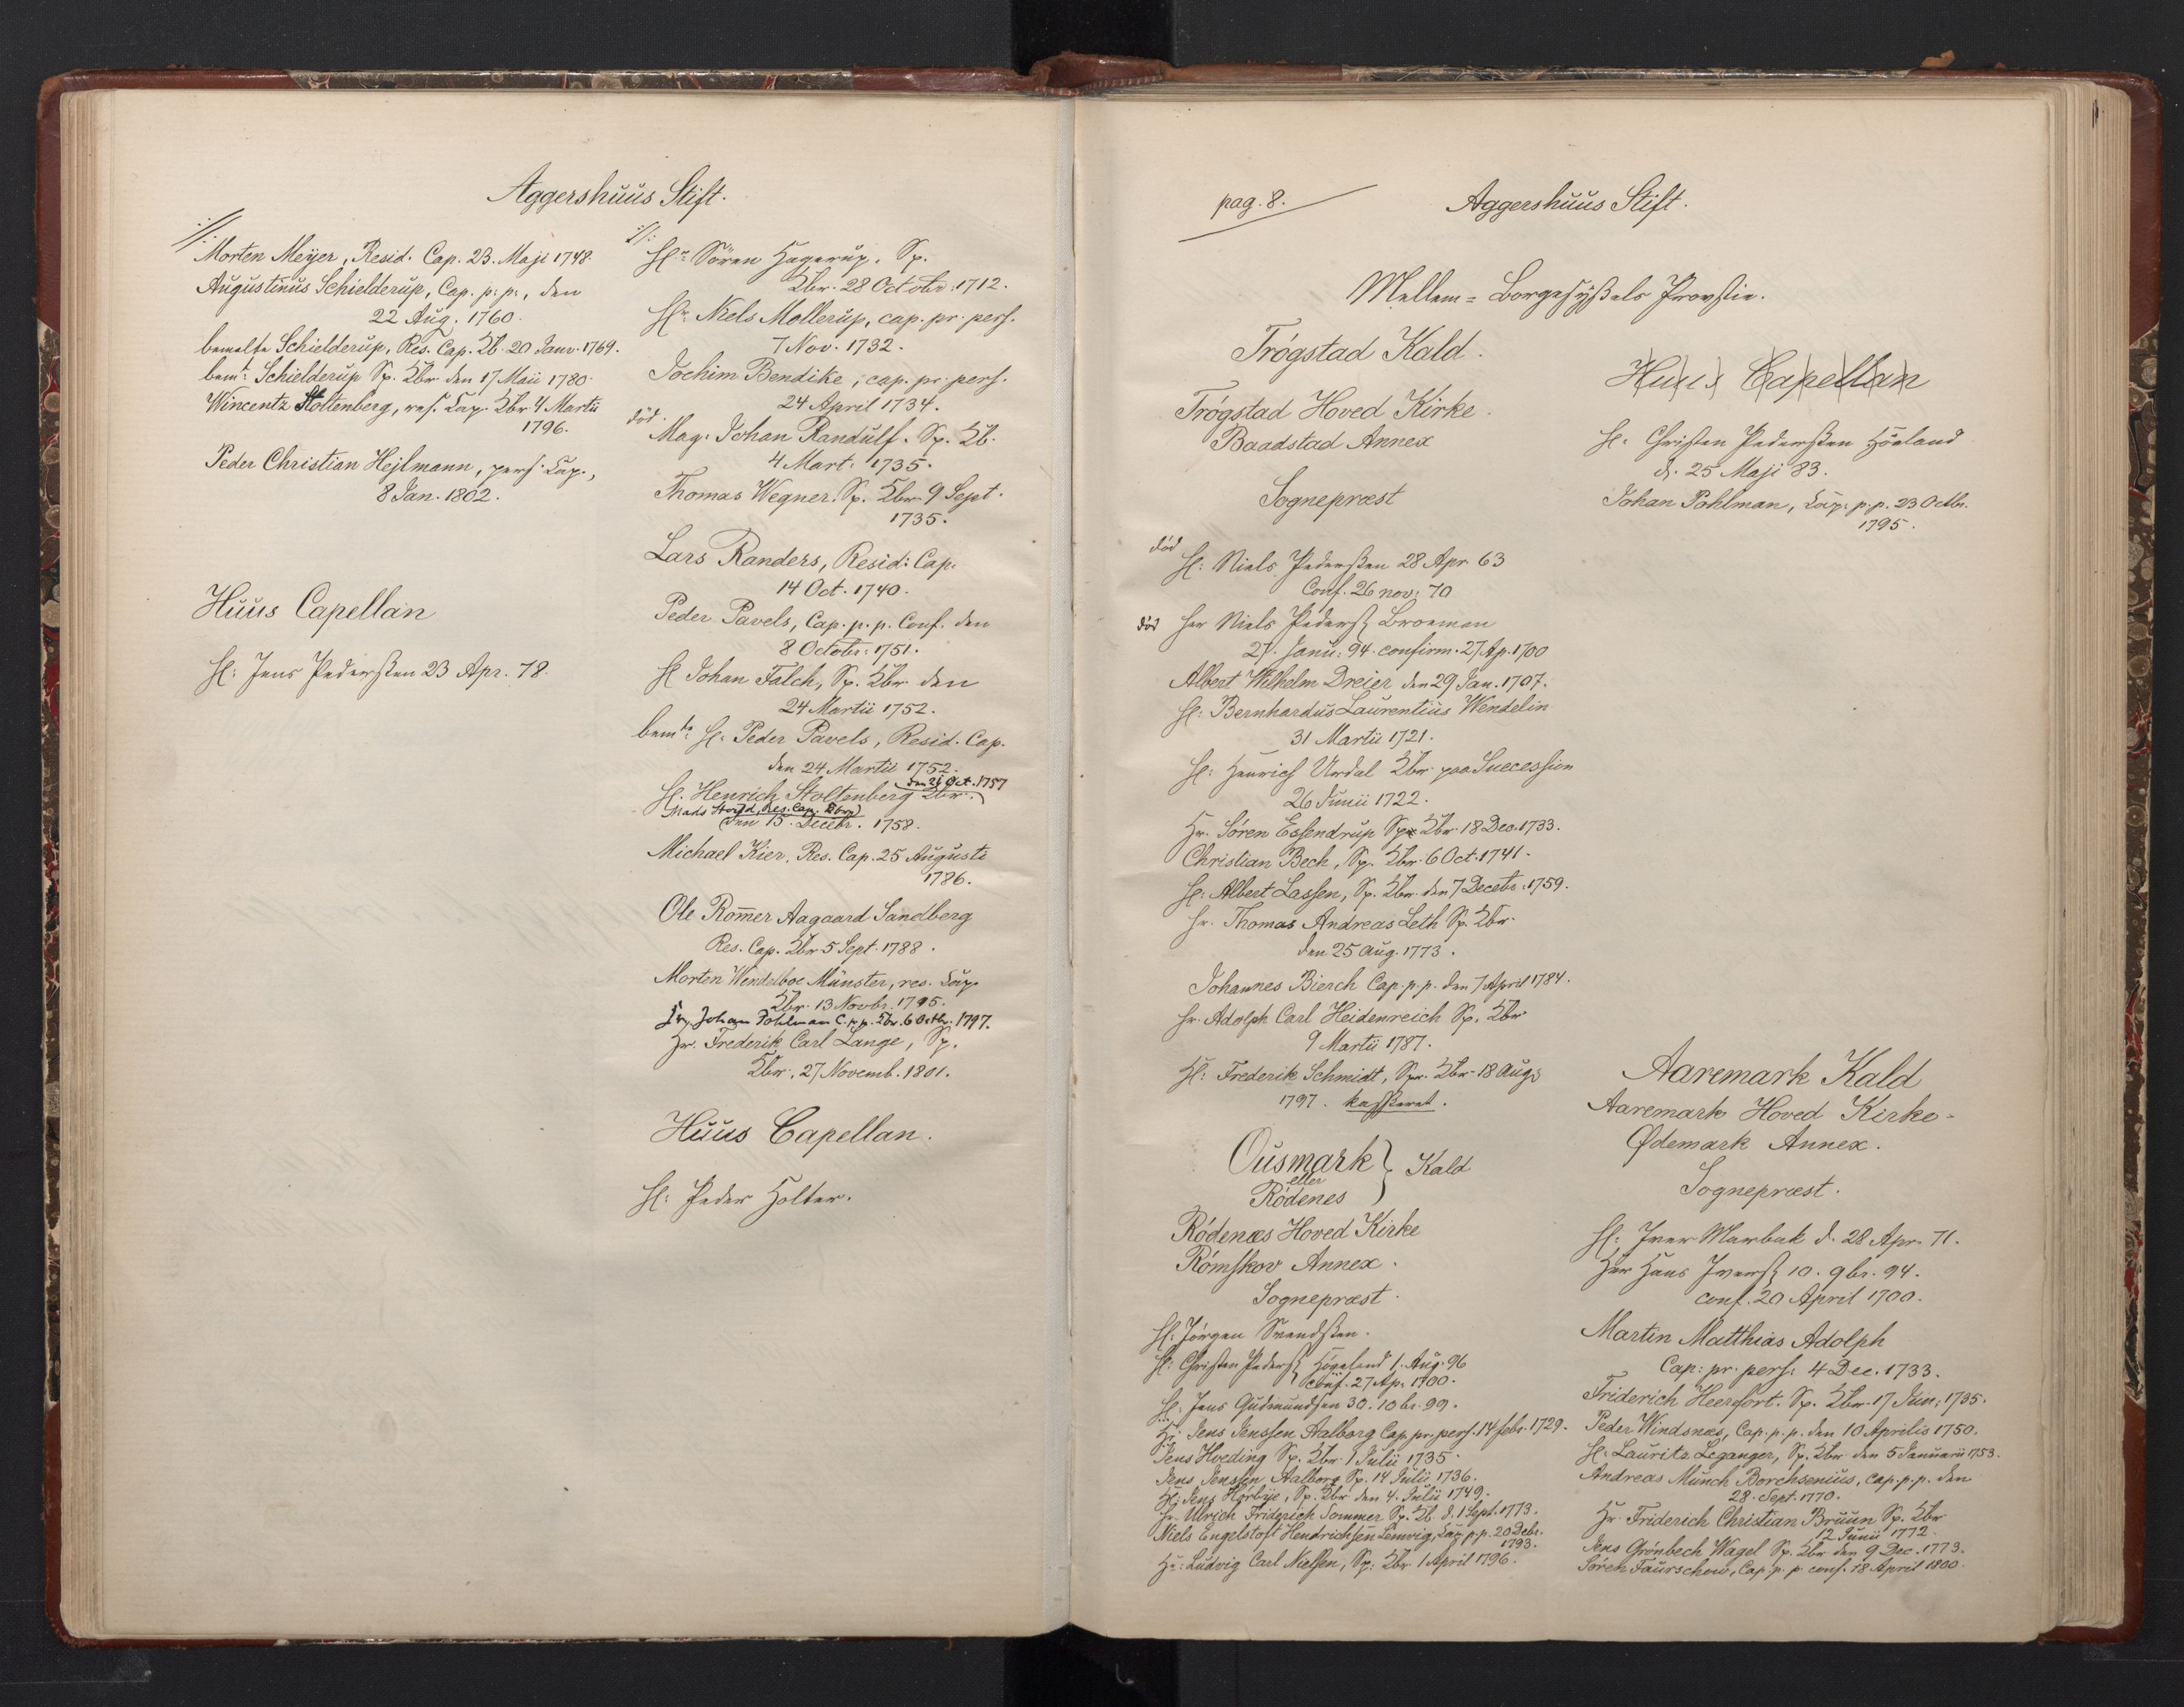 Aggershuus Stift.
Morten Meyer, Resid. Cap. 23. Maji 1748.
Augustinus Schielderup, Cap. p: p:, den
22 Aug. 1760.
bemelte Schielderup, Res. Cap. Kb. 20 Janv. 1769.
bemt: Schielderup Sp. Kbr den 17 Maii 1780.
Wincentz Stoltenberg, res. Cap. Kbr 4 Martii
1796.
Peder Christian Hejlmann, pers. Cap.,
8 Jan. 1802.
Huus Capellan
H: Jens Pederssen 23 Apr. 78.
Hr. Sören Hagerup. Sp.
Kbr. 28 Octobr: 1712.
Hr. Niels Mollerup, cap. pr. pers.
7 Nov. 1732.
Jochim Bendike, cap. pr. pers.
24 April 1734.
död.
Mag. Johan Randulf. Sp. Kb.
4 Mart. 1735.
Thomas Wegner. Sp. Kbr 9 Sept.
1735.
Lars Randers, Resid: Cap.
14 Oct. 1740.
Peder Pavels, Cap. p. p. Conf. den
8 Octobr: 1751.
H Johan Falch, Sp. Kbr den
24 Martii 1752.
bemte: H: Peder Pavels, Resid. Cap.
den 24 Martii 1752.
den 21 Oct. 1757
H. Henrich Stoltenberg Kbr.
Mads Res. Cap. Kbr
den 15. Decebr. 1758.
Michael Kier, Res. Cap. 25 Augusti
1786.
Ole Rom̄er Aagaard Sandberg
Res. Cap. Kbr 5 Sept. 1788.
Morten Wendelboe Münster, res. Cap.
Kbr. 13 Novbr. 1795.
Johan Pohlman C. p. p. Kbr. 6 Octbr. 1797.
Hr. Frederik Carl Lange, Sp.
Kbr. 27 Novemb. 1801.
Huus Capellan.
H: Peder Holter.
pag. 8.
Aggershuus Stift.
Mellem= Borgesyssels Provstie.
Trógstad Kald.
Trógstad Hoved Kirke.
Baadstad Annex
Sognepræst
död
H: Niels Pederssen 28 Apr 63
Conf. 26 nov: 70
död Her Niels Peders Broeman
27. Janu: 94. confirm. 27 Ap. 1700
Albert Wilhelm Dreier den 29 Jan. 1707.
H: Bernhardus Laurentius Wendelin
31 Martii 1721.
H: Henrich Urdal Kbr paa Succession
26 Junii 1722.
Hr. Sóren Essendrup Sp Kbr 18 Dec. 1733.
Christian Bech, Sp. Kbr. 6 Oct. 1741.
H: Albert Lassen, Sp. Kbr. den 7 Decebr: 1759.
Hr. Thomas Andreas Leth Sp. Kbr.
den 25 Aug. 1773.
Johannes Bierch Cap. p. p. den 7 April 1784.
Hr. Adolph Carl Heidenreich Sp. Kbr
9 Martii 1787.
H: Frederik Schmidt, Spr. Kbr 18 Aug:
1797. kasseret.
Ousmark
eller
Ródenes
Kald
Ródenæs Hoved Kirke
Rómskov Annex.
Sognepræst.
H: Jórgen Svendssen.
H: Christen Peders Högeland 1. Aug. 96
conf. 27 Ap. 1700.
H: Jens Gudmundsen 30. 10br. 99.
Hr. Jens Jenssen Aalborg Cap. pr. pers. 14 febr. 1729.
Jens Hveding Sp. Kbr 1 Julii 1735.
Jens Jenssen Aalborg Sp. 14 Julii 1736.
H: Jens Hórbye, Sp. Kbr den 4. Julii 1749.
Hr. Ulrich Friderich Sommer Sp. Kb. d. 1 Sept. 1773.
Niels Engelstoft Hendrichsen Lemvig, Cap. p. p. 20 Debr.
1793.
Hr: Ludvig Carl Nielsen, Sp: Kbr 1 April 1796.
Huus Capellan
H: Christen Pederssen Höeland
d. 25 Maji 83.
Johan Pohlman, Cap. p. p. 23 Octbr.
1795.
Aaremark Kald
Aaremark Hoved Kirke-
Ødemark Annex.
Sognepræst.
H: Iver Marbak d. 28 Apr. 71.
Her Hans Ivers 10. 9br. 94.
conf. 20 April 1700.
Martin Matthias Adolph
Cap: pr. pers: 4 Dec. 1733.
Friderich Heerfort. Sp. Kbr. 17 Jun: 1735.
Peder Windsnæs, Cap. p. p. den 10 Aprilis 1750.
H: Lauritz Leganger, Sp. Kbr den 5 Januarii 1753.
Andreas Munch Borchsenius, cap. p. p. den
28. Sept. 1770.
Hr. Friderich Christian Bruun Sp. Kbr
12 Junii 1772.
Jens Grónbech Wagel Sp. Kbr den 9 Dec. 1773.
Sóren Faurschou, Cap. p. p. conf. 18 April 1800.